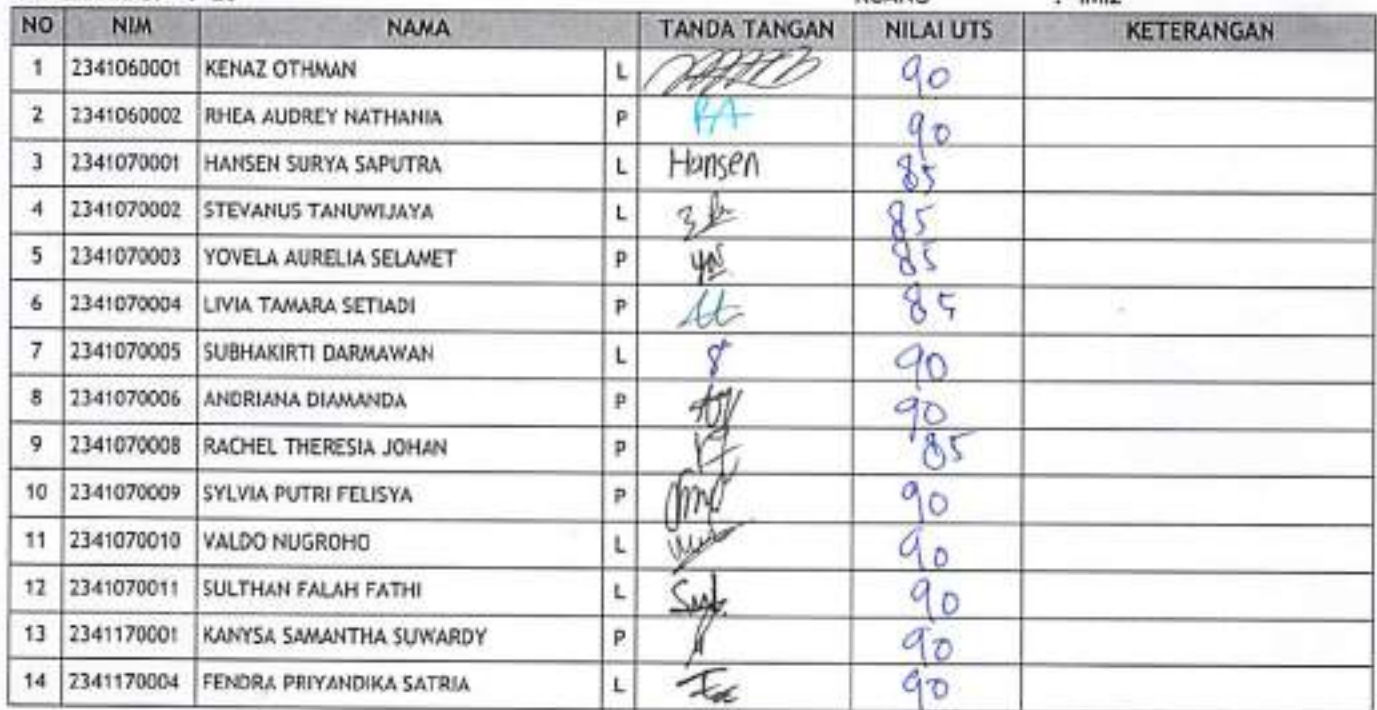 NO NIM NAMA TANDA TANGAN NILAI UTS KETERANGAN
1 2341060001 KENAZ OTHMAN L 90
2 2341060002 RHEA AUDREY NATHANIA P RA 90
3 2341070001 HANSEN SURYA SAPUTRA L Hansen 85
4 2341070002 STEVANUS TANUWIJAYA L 85
5 2341070003 YOVELA AURELIA SELAMET P 85
6 2341070004 LIVIA TAMARA SETIADI P 85
7 2341070005 SUBHAKIRTI DARMAWAN L 90
8 2341070006 ANDRIANA DIAMANDA P 90
9 2341070008 RACHEL THERESIA JOHAN P 85
10 2341070009 SYLVIA PUTRI FELISYA P 90
11 2341070010 VALDO NUGROHO L 90
12 2341070011 SULTHAN FALAH FATHI L 90
13 2341170001 KANYSA SAMANTHA SUWARDY P 90
14 2341170004 FENDRA PRIYANDIKA SATRIA L 90